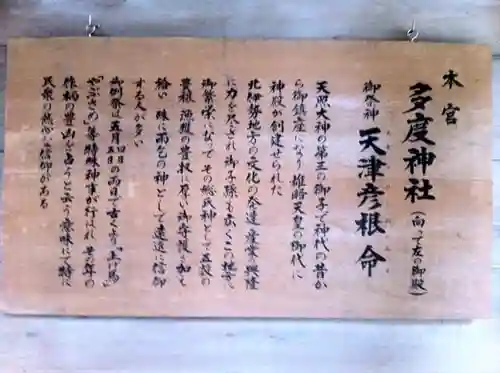 本宮
多度神社(向って左の御殿)
御祭神 天津彦根命
天照大神の第三の御子で神代の昔か
ら御鎮座になり雄略天皇の御代に
神殿が創建せられた
北伊勢地方の文化の発達産業の興隆
に力を尽され御子孫も亦この地方に
御繁栄になって その総氏神として五穀の
豊穣、漁獲の豊饒に尊い御守護を加え
給い 殊に雨乞の神として遠近に信仰
する人が多い
御例祭は五月四日五日の両日で古くより「上げ馬」
「やぶさめ」等 特殊神事が行はれ 其の年の
作柄の豊凶を占うと云う意味にて特に
民衆の熱心な信仰がある